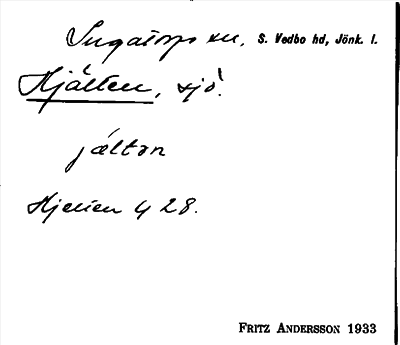 Ingatorps sn, S. Vedbo hd, Jönk. l.
Hjälten, sjö.
jälten
28.
FRITZ ANDERSSON 1933